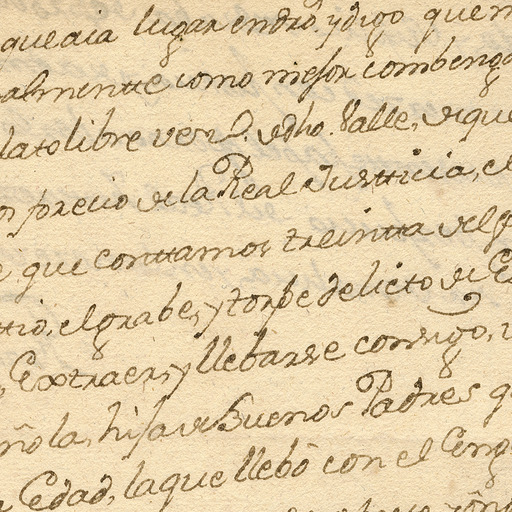 queaia lugar endro. ydigo quem
almente como mejor combenga
latolibre verd. dedho. Valle, deque
precio dela Real Justticia, el
que conttamos treintta del
ttio, elgrabe, y torpe delicto de
Exttraer, y llebarse consigo,
ñola, hija de Buenos Padres q
Edad, laque llebó con el Eng